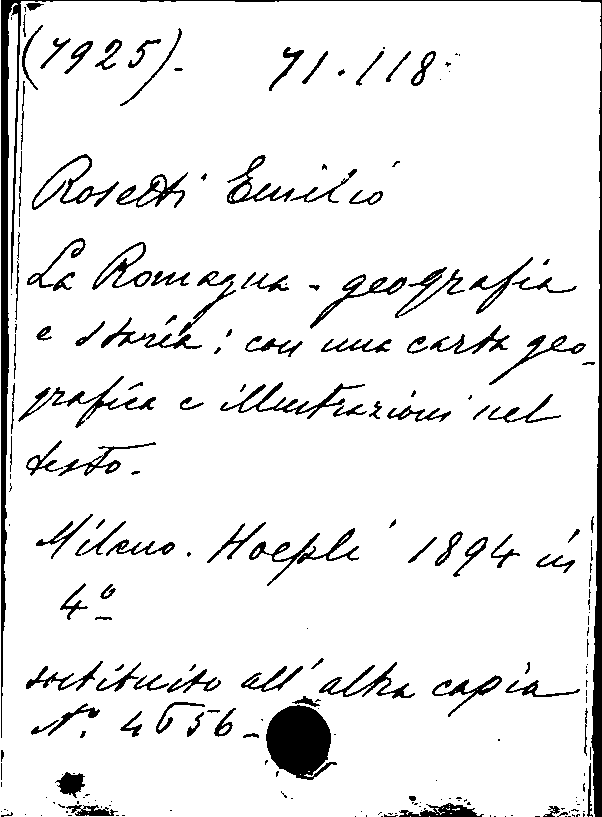 (1925). 71.118
Rosetti Emilio
La Romagna - geografia
e storia; con una carta geo-
grafica e illustrazioni nel
testo.
Milano. Hoepli 1894 in
4º
sostituito all'altra copia
Nº